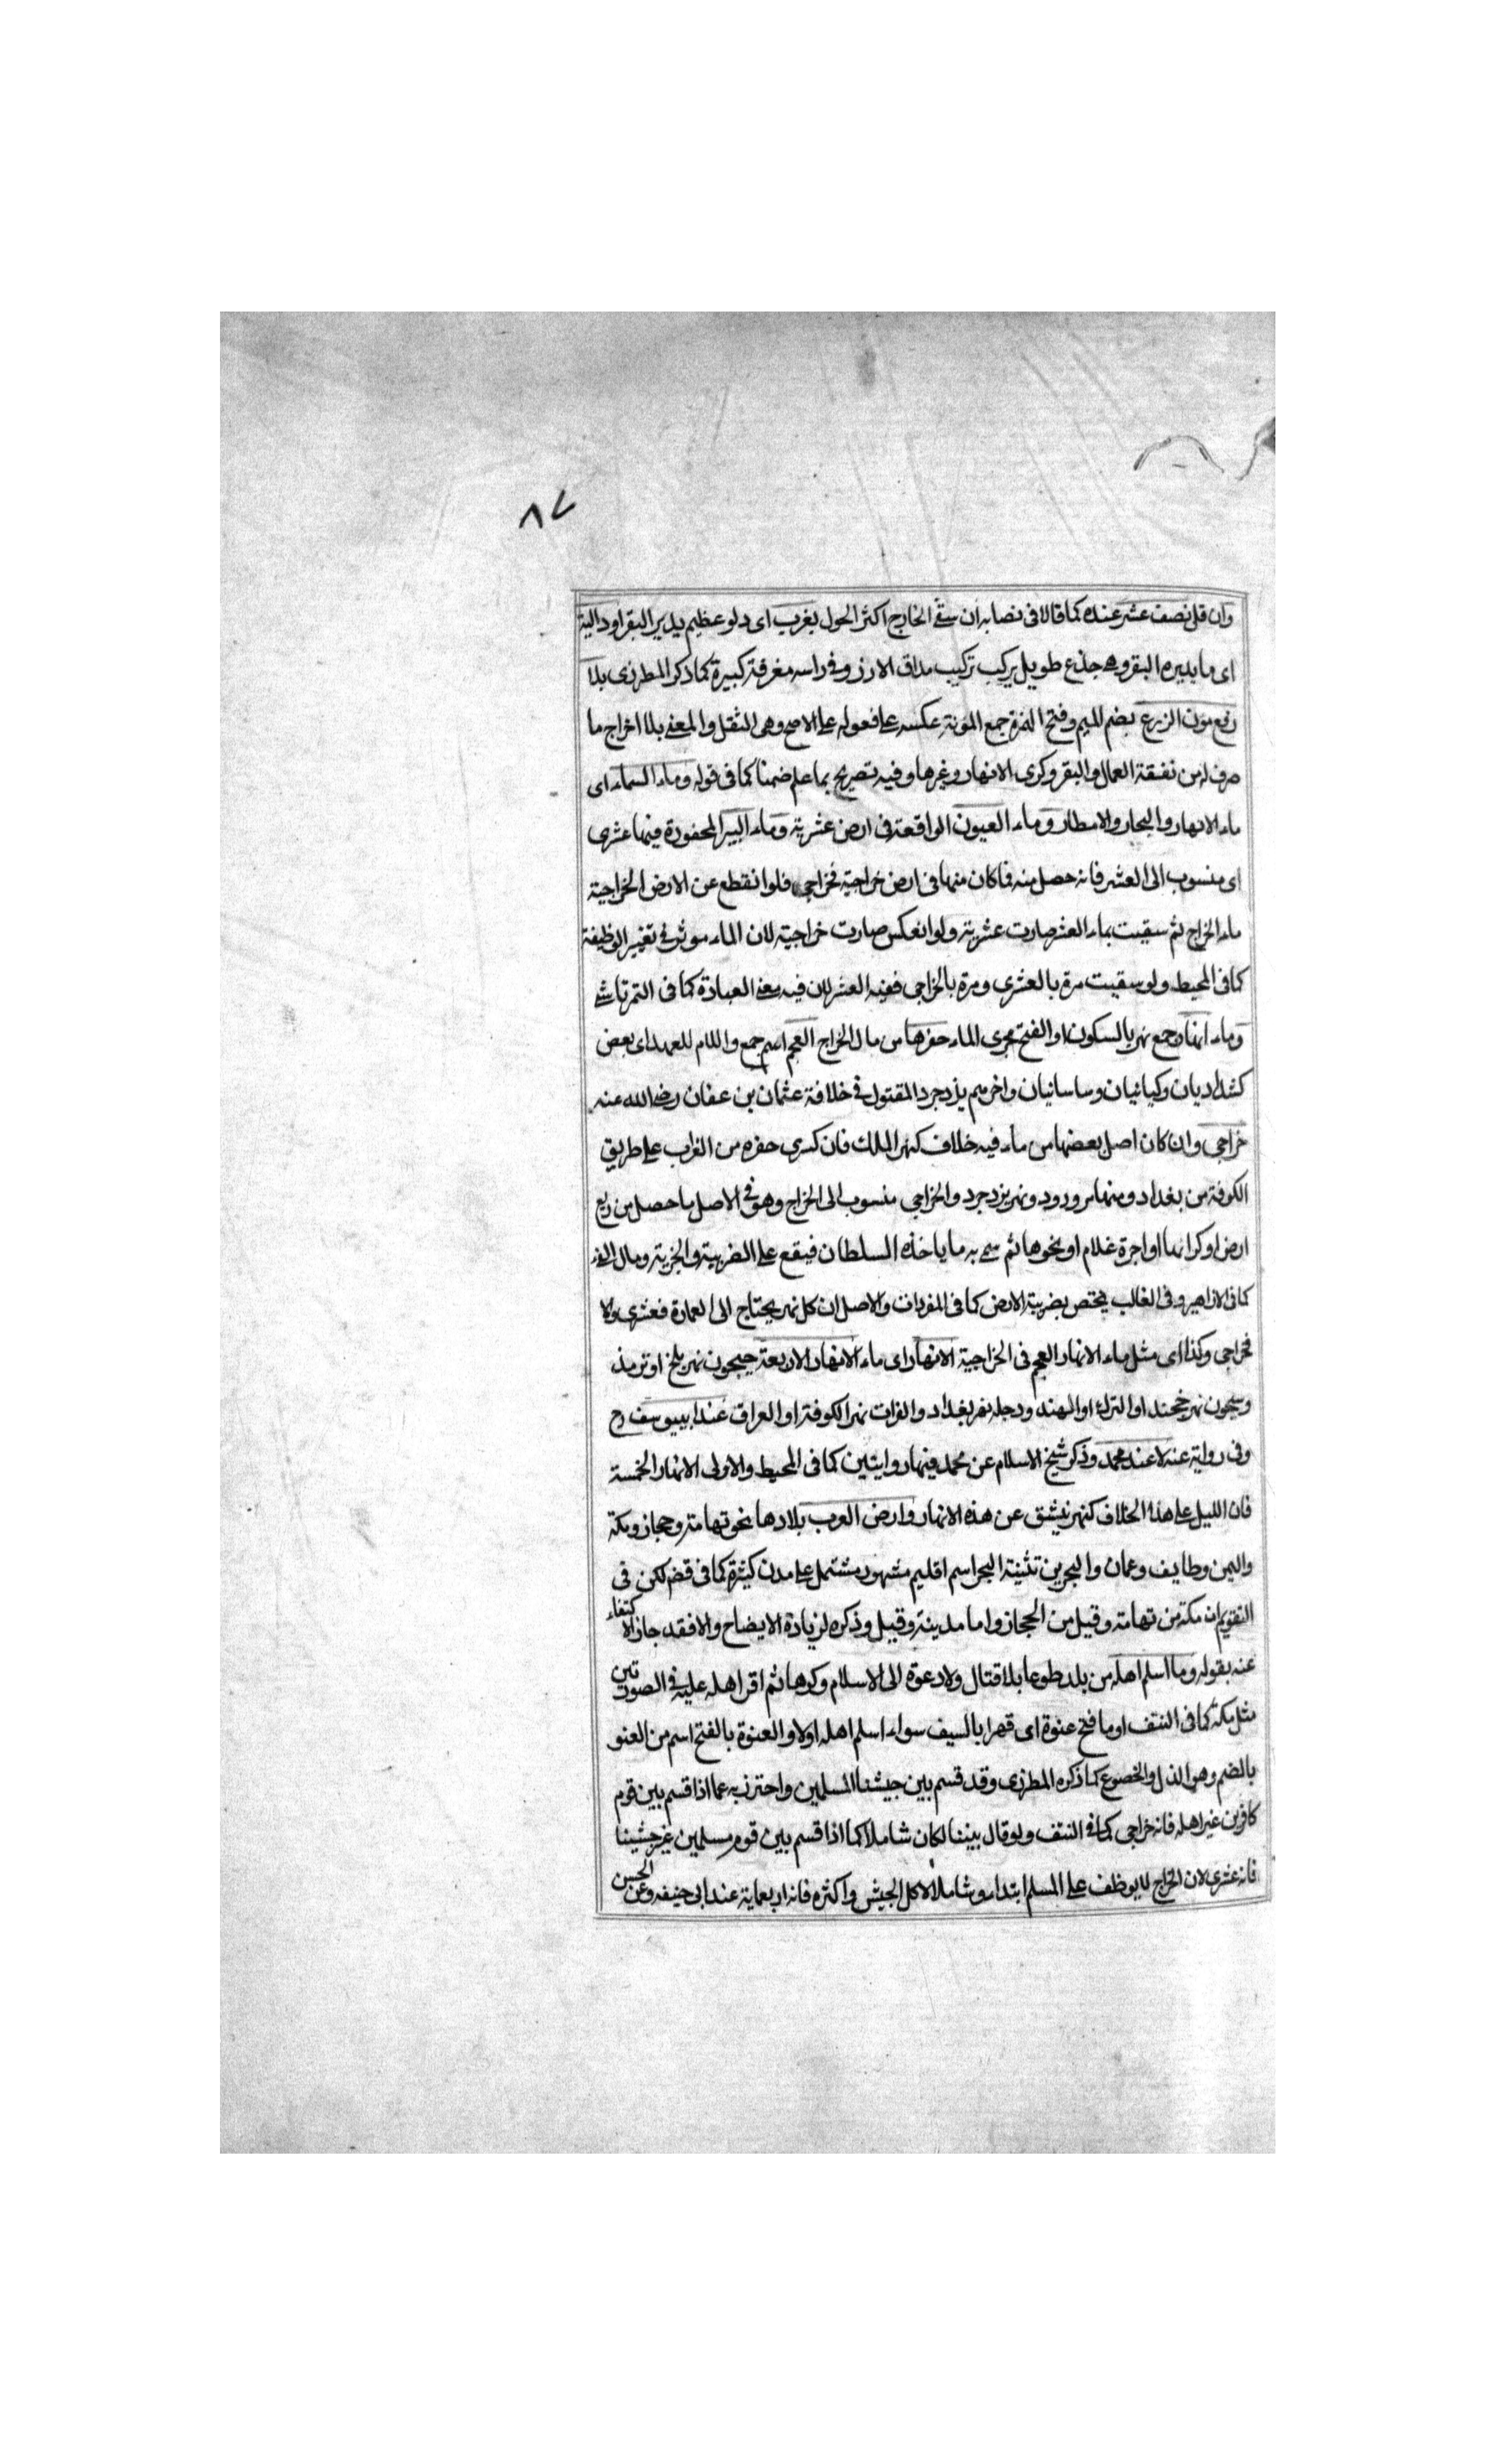 ٨٧
وان قل نصف عشر عنده كما قالا فى نصابه ان سقى الخارج اكثر الحول بغرب اى دلو عظيم يدير البقر او دالية
اى ما يديره البقر وهى جذع طويل يركب تركيب مداق الارز وفى راسه مغرفة كبيرة كما ذكر المطرزى بلا
رفع مون الزرع بضم الميم وفتح الهمزة جمع المونة عكسه على فعوله على الاصح وهى الثقل والمعنى بلا اخراج ما
صرف له من نفقة العمال والبقر وكرى الانهار وغيرها وفيه تصريح بما علم ضمنا كما فى قوله وماء السماء اى
ماء الانهار والبحار والامطار وماء العيون الواقعة فى ارض عشرية وماء البير المحفورة فيها عشرى
اى منسوب الى العشر فانه حصل منه فما كان منها فى ارض خراجية فخراجى فلو انقطع عن الارض الخراجية
ماء الخراج ثم سقيت بماء العشر صارت عشرية ولو انعكس صارت خراجية لان الماء موثر فى تغيير الوظيفة
كما فى المحيط ولو سقيت مرة بالعشرى ومرة بالخراجى ففيه العشر لان فيه معنى العبادة كما فى التمرتاشى
وماء انهار جمع نهر بالسكون او الفتح مجرى الماء حفرها من مال الخراج العجم اسم جمع واللام للعهد اى بعض
كشداديان وكيانيان وساسانيان واخرهم يزدجرد المقتول فى خلافة عثمان بن عفان رضى الله عنه
خراجى وان كان اصل بعضها من ماء فيه خلاف كنهر الملك فان كسرى حفره من الفراب على طريق
الكوفة من بغداد ومنها مرورود ونهر يزدجرد والخراجى منسوب الى الخراج وهو فى الاصل ما حصل من ريع
ارض او كرائها او اجرة غلام او نحوها ثم سمى به ما ياخذه السلطان فيقع على الضريبة والجزية ومال الفئ
كما فى الازاهير وفى الغالب يختص بضريبة الارض كما فى المفردات والاصل ان كل نهر يحتاج الى العمارة فعشرى والا
فخراجى وكذا اى مثل ماء الانهار العجم فى الخراجية الانهار اى ماء الانهار الاربعة جيحون نهر بلخ او ترمذ
وسيحون نهر خجند او الترك او الهند ودجله نهر بغداد والفرات نهر الكوفة او العراق عند ابى يوسف رح
وفى رواية عنه لا عند محمد وذكر شيخ الاسلام عن محمد فيها روايتين كما فى المحيط والاولى الانهار الخمسة
فان النيل على هذا الخلاف كنهر ينشق عن هذه الانهار وارض العرب بلادها نحو تهامة وحجاز ومكة
واليمن وطايف وعمان والبحرين تثنية البحر اسم اقليم مشهور مشتمل على مدن كثيرة كما فى قضم لكن فى
التقويم ان مكة من تهامة وقيل من الحجاز واما مدينة وقيل وذكره لزيادة الايضاح والا فقد جاز الاكتفاء
عنه بقوله وما اسلم اهله من بلد طوعا بلا قتال ولا دعوة الى الاسلام وكرها ثم اقر اهله عليه فى الصورتين
مثل مكة كما فى النتف او ما فتح عنوة اى قهرا بالسيف سواء اسلم اهله اولا والعنوة بالفتح اسم من العنو
بالضم وهو الذل والخضوع كما ذكره المطرزى وقد قسم بين جيشنا المسلمين واحترز به عما اذا قسم بين قوم
كافرين غير اهله فانه خراجى كما فى النتف ولو قال بيننا لكان شاملا كما اذا قسم بين قوم مسلمين غير جيشنا
فانه عشرى لان الخراج لا يوظف على المسلم ابتداء وشاملا لاكل الجيش واكثره فانه اربعماية عند ابى حنيفه وعن الحسن